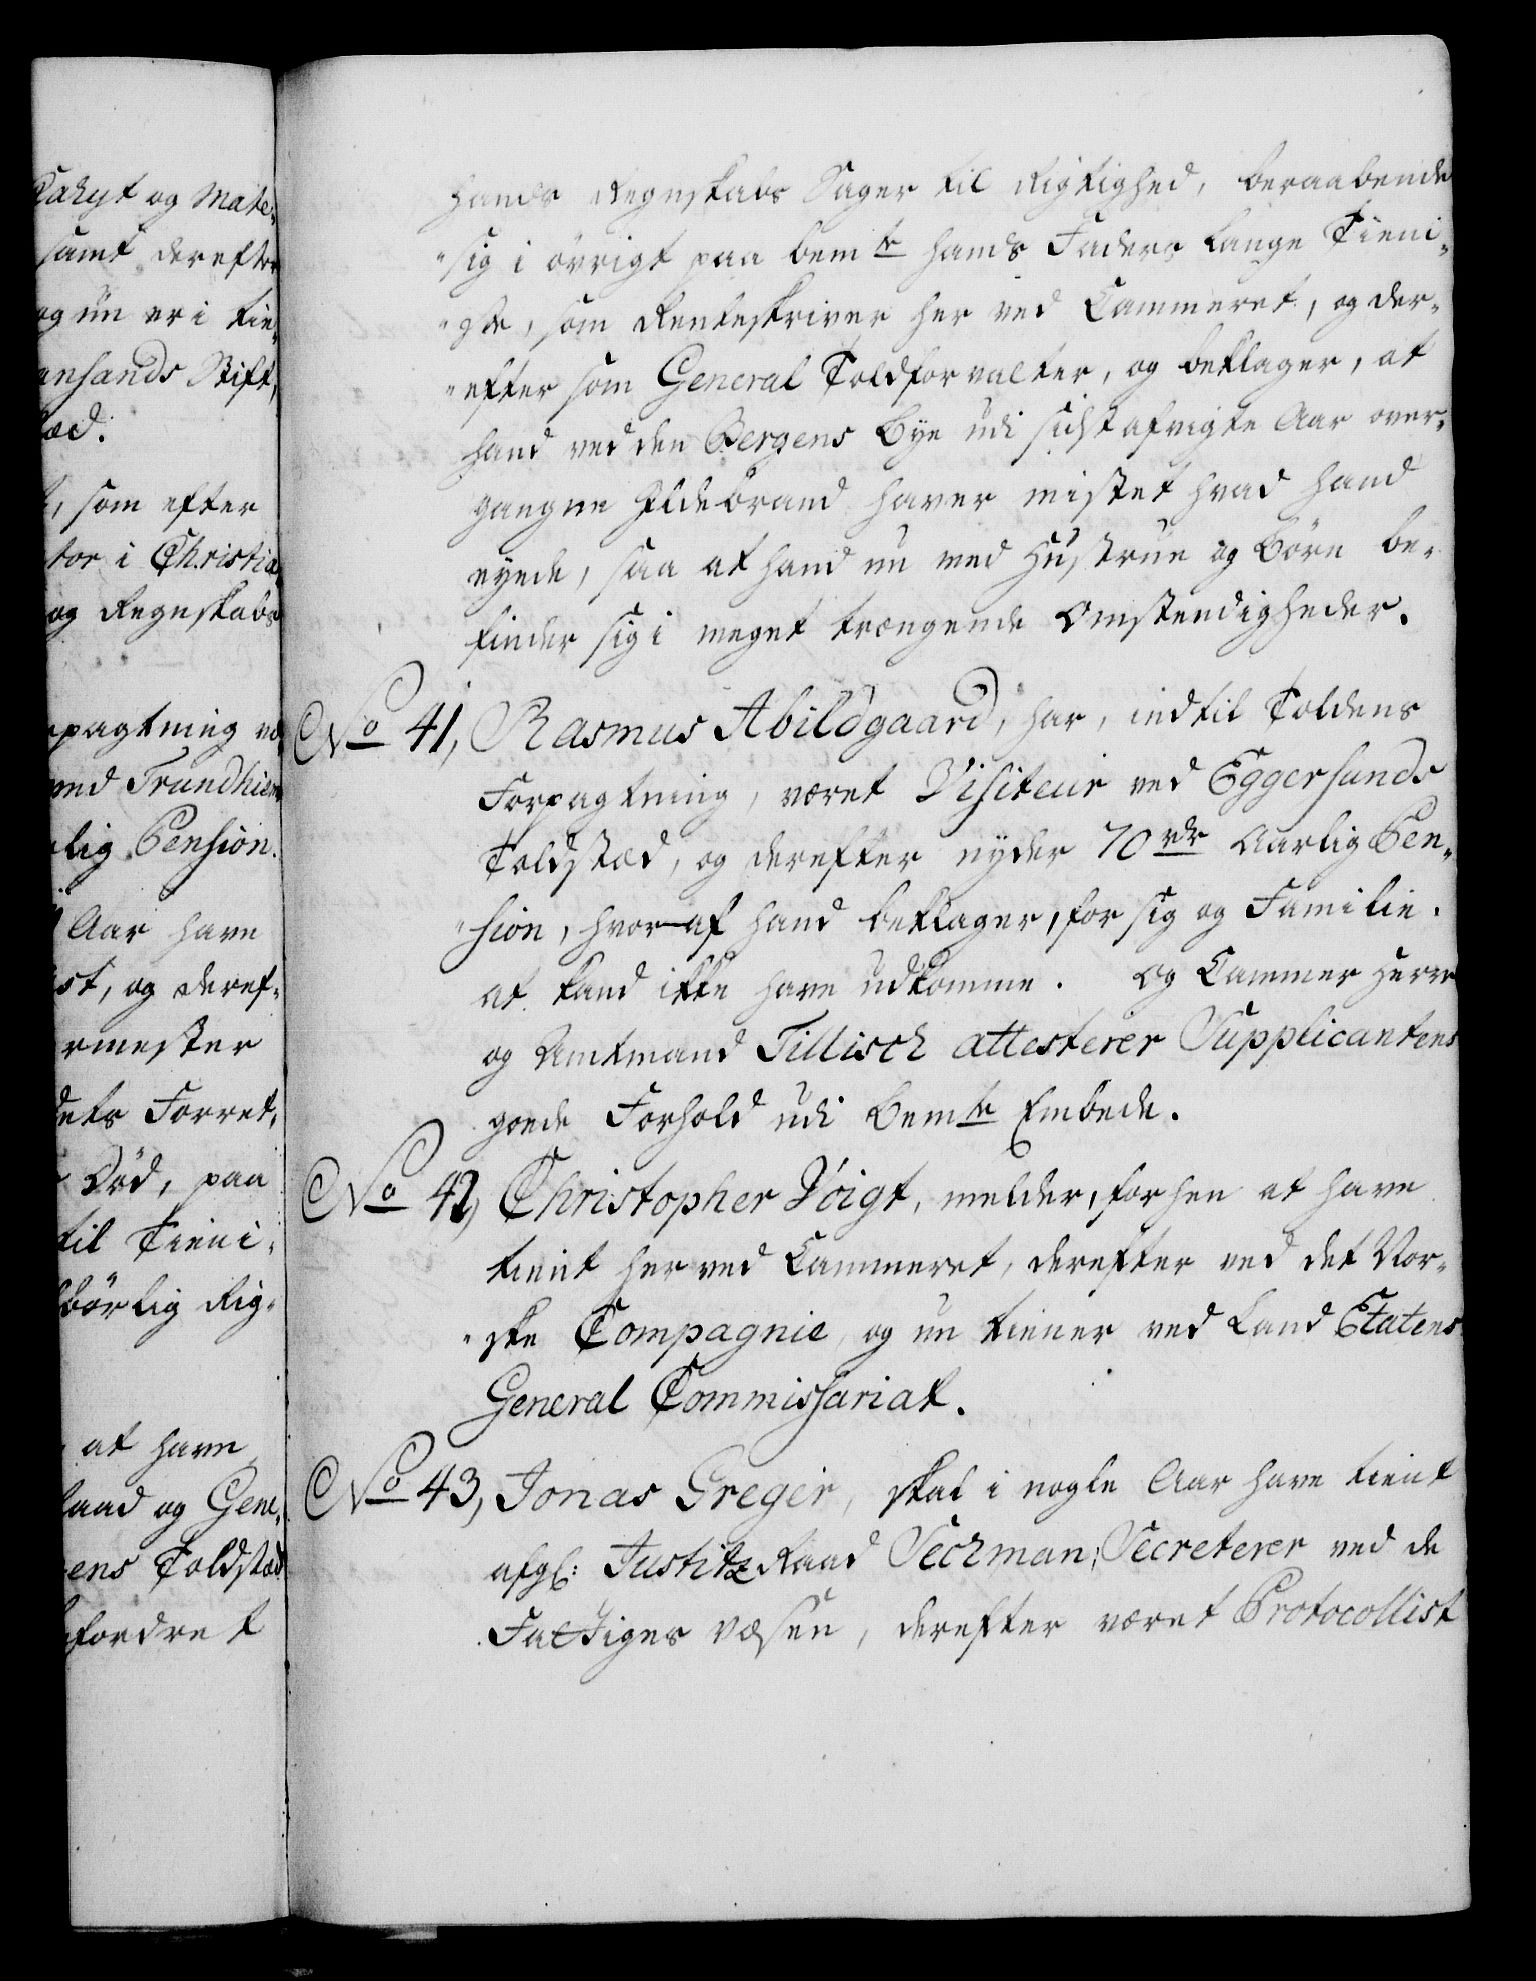 Cahyt og Mate„
samt derefter
og nu er i tie„
ansands Stift,
æd.
, som efter
tor i Christia„
og Regnskabs
pagtning
ved Trundhiem
lig Pension.
Aar have
ist, og deref„
rmester
dets Forret„
Död, paa
til Tieni„
börlig Rig„
at have
raad og Gene„
ens Toldstæd
fordret
hands Regnskabs Sager til Rigtighed, beraabende
sig i övrigt paa bemte hands Faders lange Tieni„
„ste, som Renteskriver her ved Cammeret, og der„
„efter som General Toldforvalter, og beklager, at
hand ved den Bergens Bye udi sidst afvigte Aar over„
gangne Ildebrand haver mistet hvad hand
eyede, saa at hand nu med Hustrue og Börn be„
finder sig i meget trængende Omstendigheder.
No 41, Rasmus Abildgaard, har, indtil Toldens
Forpagtning, været Visiteur ved Eggersunds
Toldstæd, og derefter nyder 70 rdr Aarlig Pen„
„sion, hvoraf hand beklager, for sig og Familie.
at kand ikke have udkomme. Og Cammer Herre
og Amtmand Tillisch attesterer Supplicantens
goede Forhold udi bemte Embede.
No 42, Christopher Voigt, melder, forhen at have
tient her ved Cammeret, derefter ved det Nor„
„ske Compagnie, og nu tiener ved Land Etatens
General Commissariat.
No 43, Jonas Greger, skal i nogle Aar have tient
afgl: Justitz Raad Sechman, Secreterer ved de
Fattiges Væsen, derefter været Protocollist